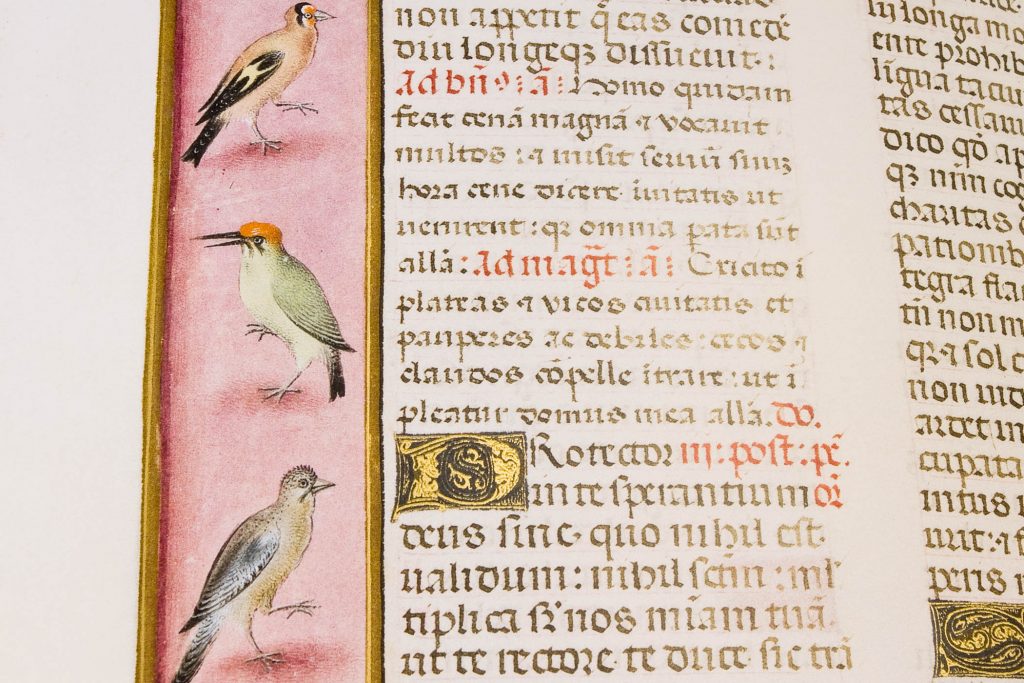 non appetit q̄ eas comedē
diu longeqꝫ dissuevit :
ad bn̄ꝰ : ā : Homo quidam
fecit cenā magnā ⁊ vocavit
multos : ⁊ misit servū suuꝫ
hora cene dicere īvitatis ut
venirent : qꝛ omnia ꝑata sūt
allā : ad magt̄ : ā : Exi cito ī
plateas ⁊ vicos civitatis et
pauperes ac debiles : cecos ⁊
claudos cōpelle ītrare : ut ī
pleatur domus mea allā. Do.
PRotector iij : post : pē.
in te sperantium or̄
deus sine quo nihil est
validum : nihil sctm̄ : ml̄
tiplica sr̄ nos mīam tuā.
ut te rectore te duce sic trā
in longa mo
ente prohib
ligna taciu
tas cessan
dico qđ ap
qꝫ nim cog
charitas
patiomb
tegra fla
tū non
qꝛ ⁊ sol c
non
artet in
cupata
intus
peris